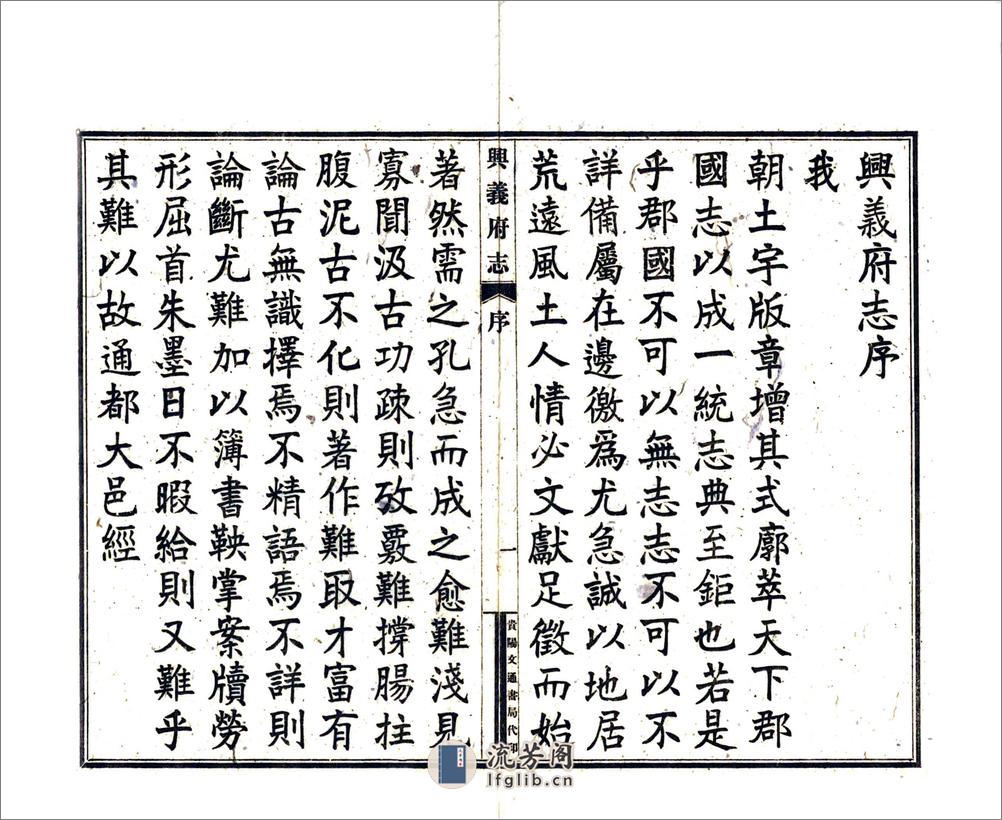 興義府志序
我
朝土宇版章增其式廓萃天下郡
國志以成一統志典至鉅也若是
乎郡國不可以無志志不可以不
詳備屬在邊徼爲尤急誠以地居
荒遠風土人情必文獻足徵而始
興義府志 序 一 貴陽文通書局代印
著然需之孔急而成之愈難淺見
寡聞汲古功疎則攷覈難撐腸拄
腹泥古不化則著作難取才富有
論古無識擇焉不精語焉不詳則
論斷尤難加以簿書鞅掌案牘勞
形屈首朱墨日不暇給則又難乎
其難以故通都大邑經
流芳阁
lfglib.cn